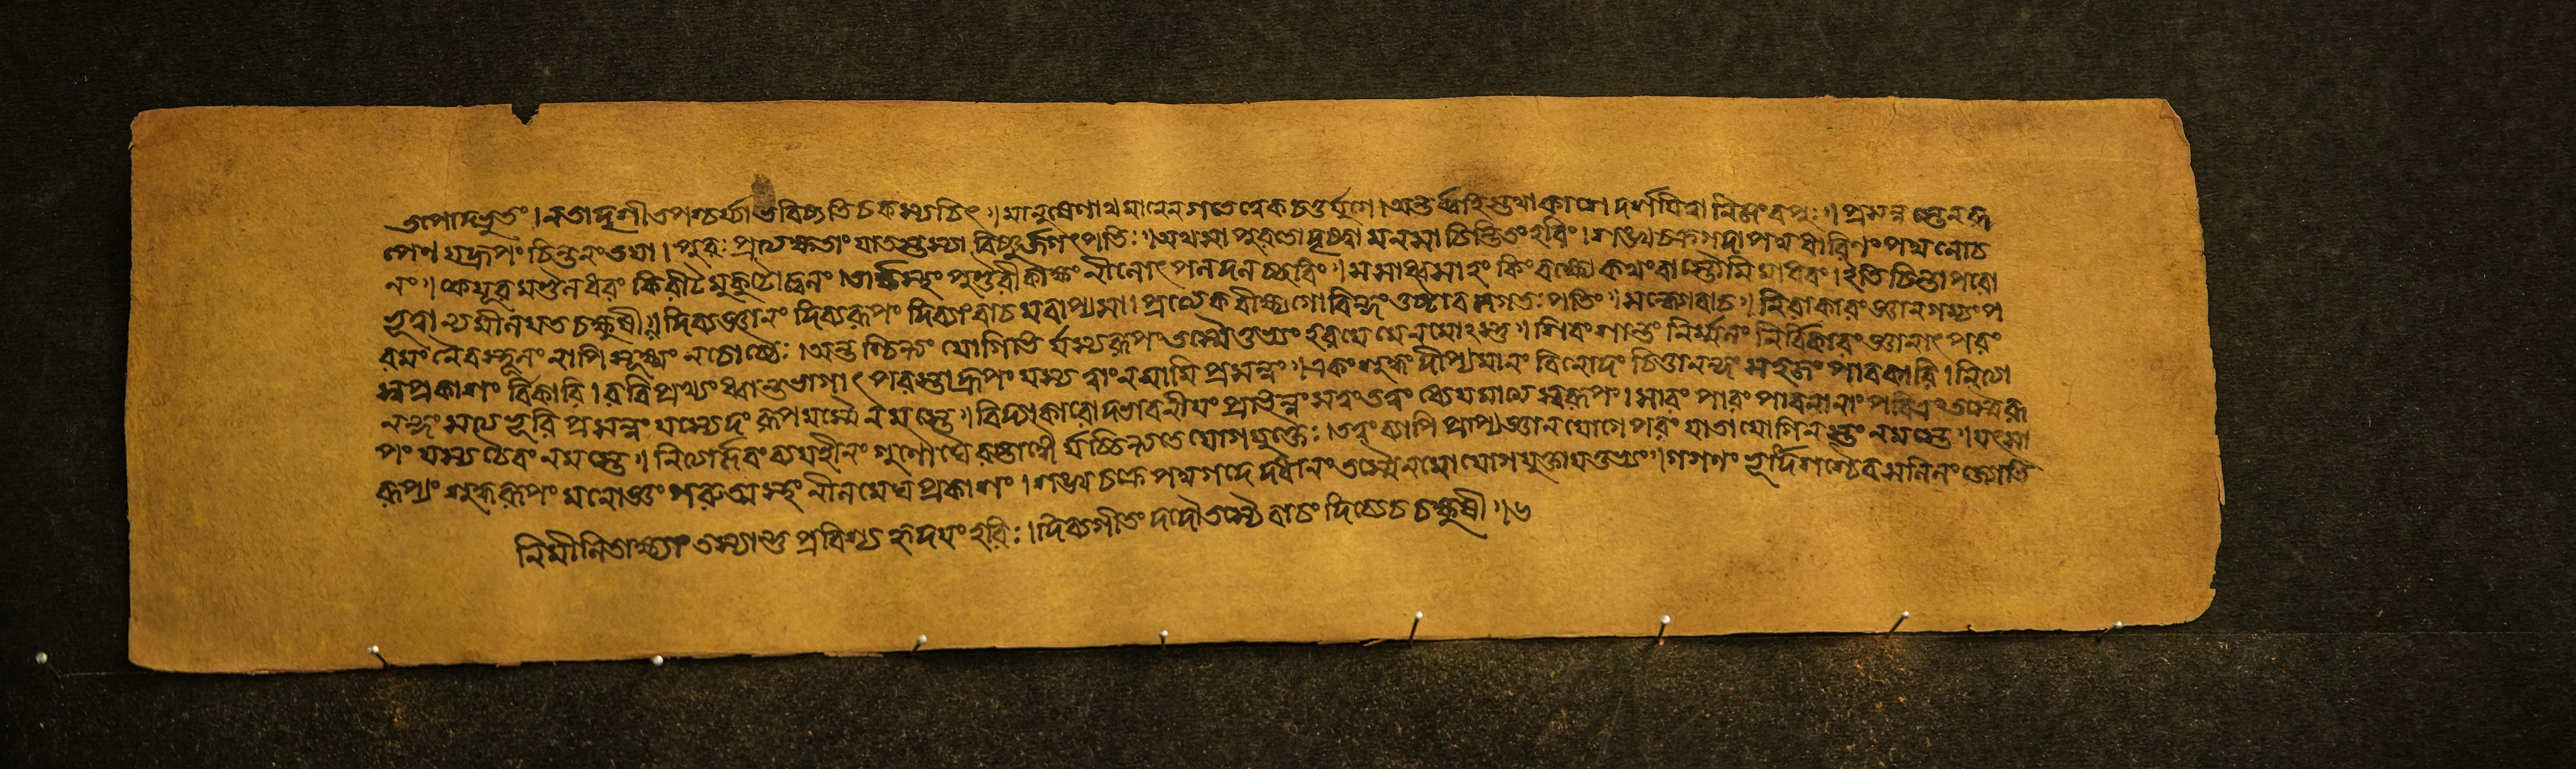 তপোদভুতং। ন তাদৃশী তপশ্চর্য্যা ভবিষ্যতি চ কস্যচিৎ॥ মানুষেণাথ মানেন গতে নেকচতুর্যুগে। অন্তর্ব্বহিস্তথাকাশে দর্শয়িত্বা নিজং বপুঃ॥ প্রসন্নস্তেন রূ
পেণ যদ্রূপং চিন্তনং তয়া। পুরঃ প্রত্যক্ষতাং যাতস্তস্যা বিষ্ণুর্জগৎপতিঃ॥ অথ সা পুরতো দৃষ্ট্বা মনসা চিন্তিতং হরিং। শঙ্খচক্রগদাপদ্মধারিণং পদ্মলোচ
নং॥ কেয়ূরমণ্ডলধরং কিরীটমুকুটোজ্বলং। তার্ক্ষস্থং পুণ্ডরীকাক্ষং নীলোৎপলদলচ্ছবিং॥ সসাধ্বসাহং কিং বক্ষ্যে কথং বা স্তৌমি মাধবং। ইতি চিন্তাপরো
ভূত্বা ন্যমীলয়ত চক্ষুষী॥ দিব্যজ্ঞানং দিব্যরূপং দিব্যাং বাচমবাপ্য সা। প্রত্যেক বীক্ষ্য গোবিন্দং তুষ্টাব জগতঃ পতিং॥ সন্ধ্যোবাচ॥ নিরাকারং জ্ঞানগম্যং প
রমং নৈব স্থূলং নাপি সূক্ষ্মং ন চোচ্চৈঃ। অন্তশ্চিন্ত্যং যোগিভির্যস্য রূপং তস্মৈ তুভ্যং হরয়ে মে নমোঽস্তু॥ শিবং শান্তং নির্ম্মলং নির্বিকারং জ্ঞানাৎ পরং
স্বপ্রকাশং বিকারি। রবিপ্রখ্যং ধ্বান্তভাগাৎ পরস্তাদ্রূপং যস্য ত্বাং নমামি প্রসন্নং॥ একং শুদ্ধং দীপ্যমানং বিনোদং চিত্তানন্দং সহজং পাবকারি। নিত্যা
নন্দং সত্যভূরি প্রসন্নং যস্যেদং রূপমস্মৈ নমস্তে॥ বিদ্যাকারোদ্ভাবনীয়ং প্রভিন্নং সত্বং তত্বং ধ্যেয়মাত্মস্বরূপং। সারং পারং পাবনানাং পবিত্রং তস্মৈ রূ
পং যস্য চৈবং নমস্তে॥ নিত্যার্জবং ব্যয়হীনং গুণৌঘৈরষ্টাঙ্গৈর্যচ্চিন্ত্যতে যোগযুক্তৈঃ। তত্বং ব্যাপি প্রাপ্য জ্ঞানযোগে পরং যাতা যোগিনস্তং নমস্তে॥ যৎসা
রূপ্যং শুদ্ধরূপং মনোজ্ঞং গরুত্মস্থং নীলমেঘপ্রকাশং। শঙ্খচক্রপদ্মগদে দধানং তস্মৈ নমো যোগযুক্তায় তুভ্যং॥ গগণং ভূর্দিশশ্চৈব সলিলং জ্যোতি
নিমীলিতাক্ষ্যাং তস্যাস্তু প্রবিশ্য হৃদয়ং হরিঃ। দিব্যগীতং দদৌ তস্যৈ বাচং দিব্যে চ চক্ষুষী॥৬